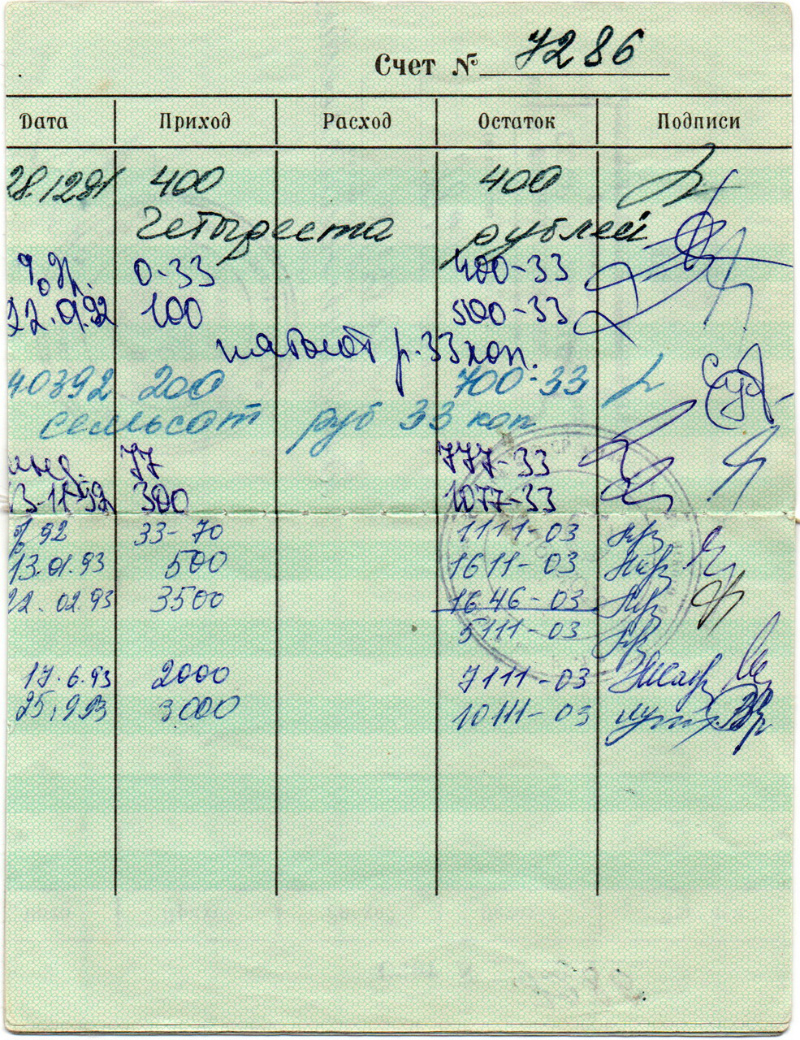 Счет № 7286
Дата Приход Расход Остаток Подписи
28.1291 400 400
Четыреста рублей
0-33 400-33
22.01.92 100 500-33
пятьсот р. 33 коп.
40392 200 700-33
семьсот руб 33 коп
77 777-33
13-11-92 300 1077-33
92 33-70 1111-03
13.01.93 500 1611-03
22.02.93 3500 1646-03
5111-03
17.6.93 2000 7111-03
25,993 3000 10111-03